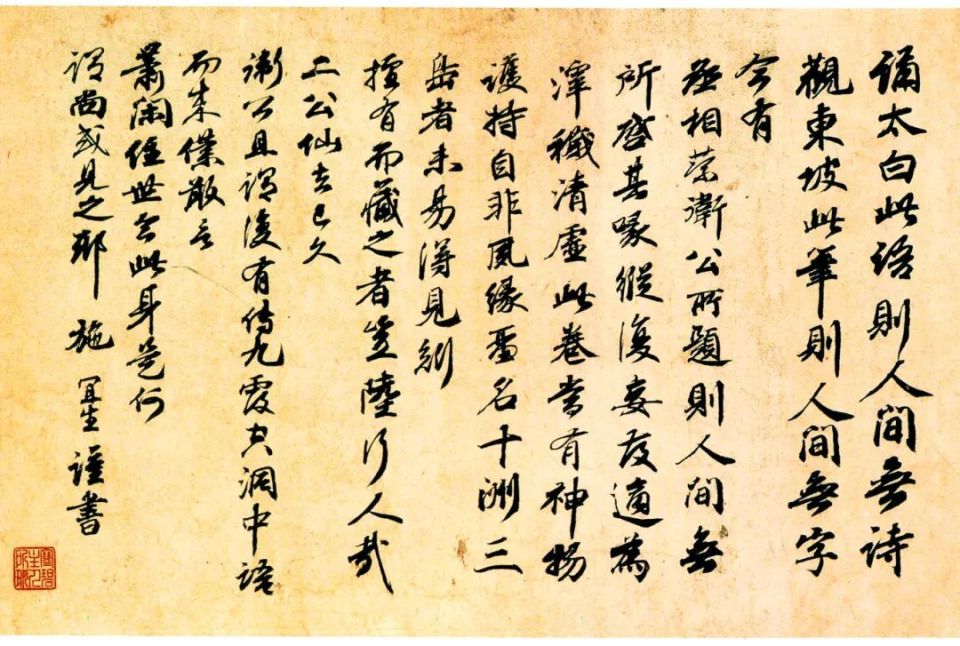 誦太白此語則人間無詩
觀東坡此筆則人間無字
今有
丞相蔡衛公所題則人間無
所啓其喙縱復妄發適爲
滓穢清虛此卷當有神物
護持自非夙緣啚名十洲三
島者未易得見矧
擅有而藏之者豈陸行人哉
二公仙去已久
衛公且謂後有傳九霞空洞中語
而來僕散言
蕭閑住世会此身是何
謂尚或見之耶 施宜生謹書